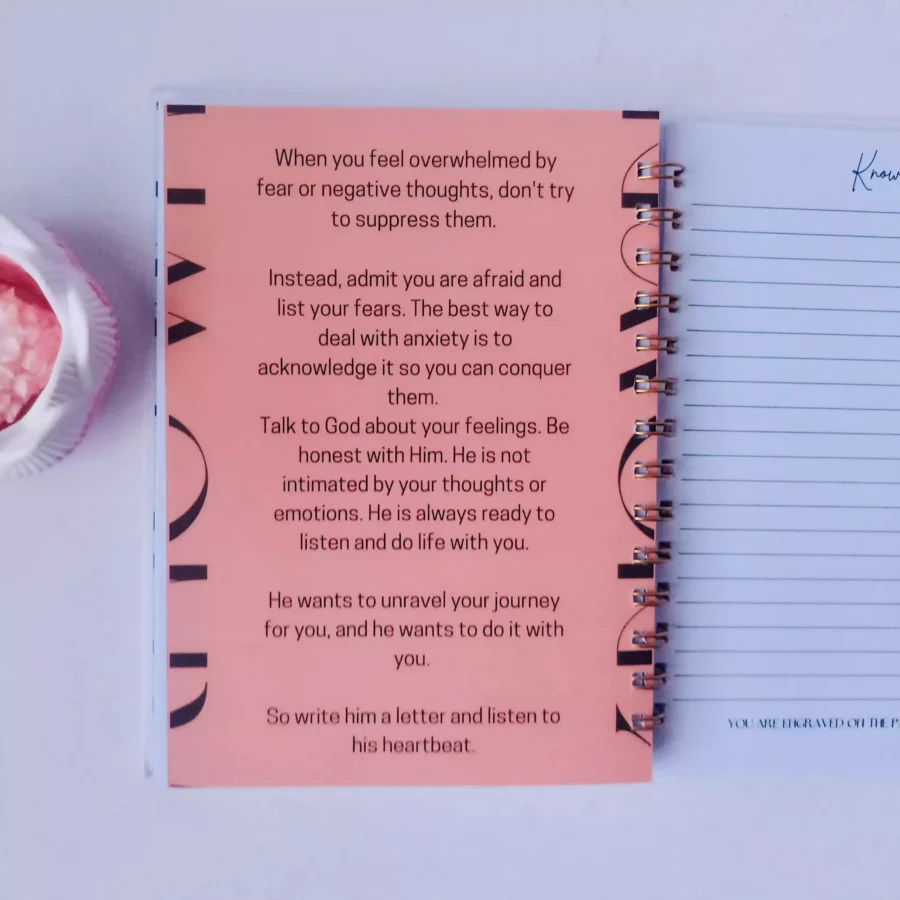 When you feel overwhelmed by
fear or negative thoughts, don't try
to suppress them.
Instead, admit you are afraid and
list your fears. The best way to
deal with anxiety is to
acknowledge it so you can conquer
them.
Talk to God about your feelings. Be
honest with Him. He is not
intimated by your thoughts or
emotions. He is always ready to
listen and do life with you.
He wants to unravel your journey
for you, and he wants to do it with
you.
So write him a letter and listen to
his heartbeat.
Know
YOU ARE ENGRAVED ON THE P